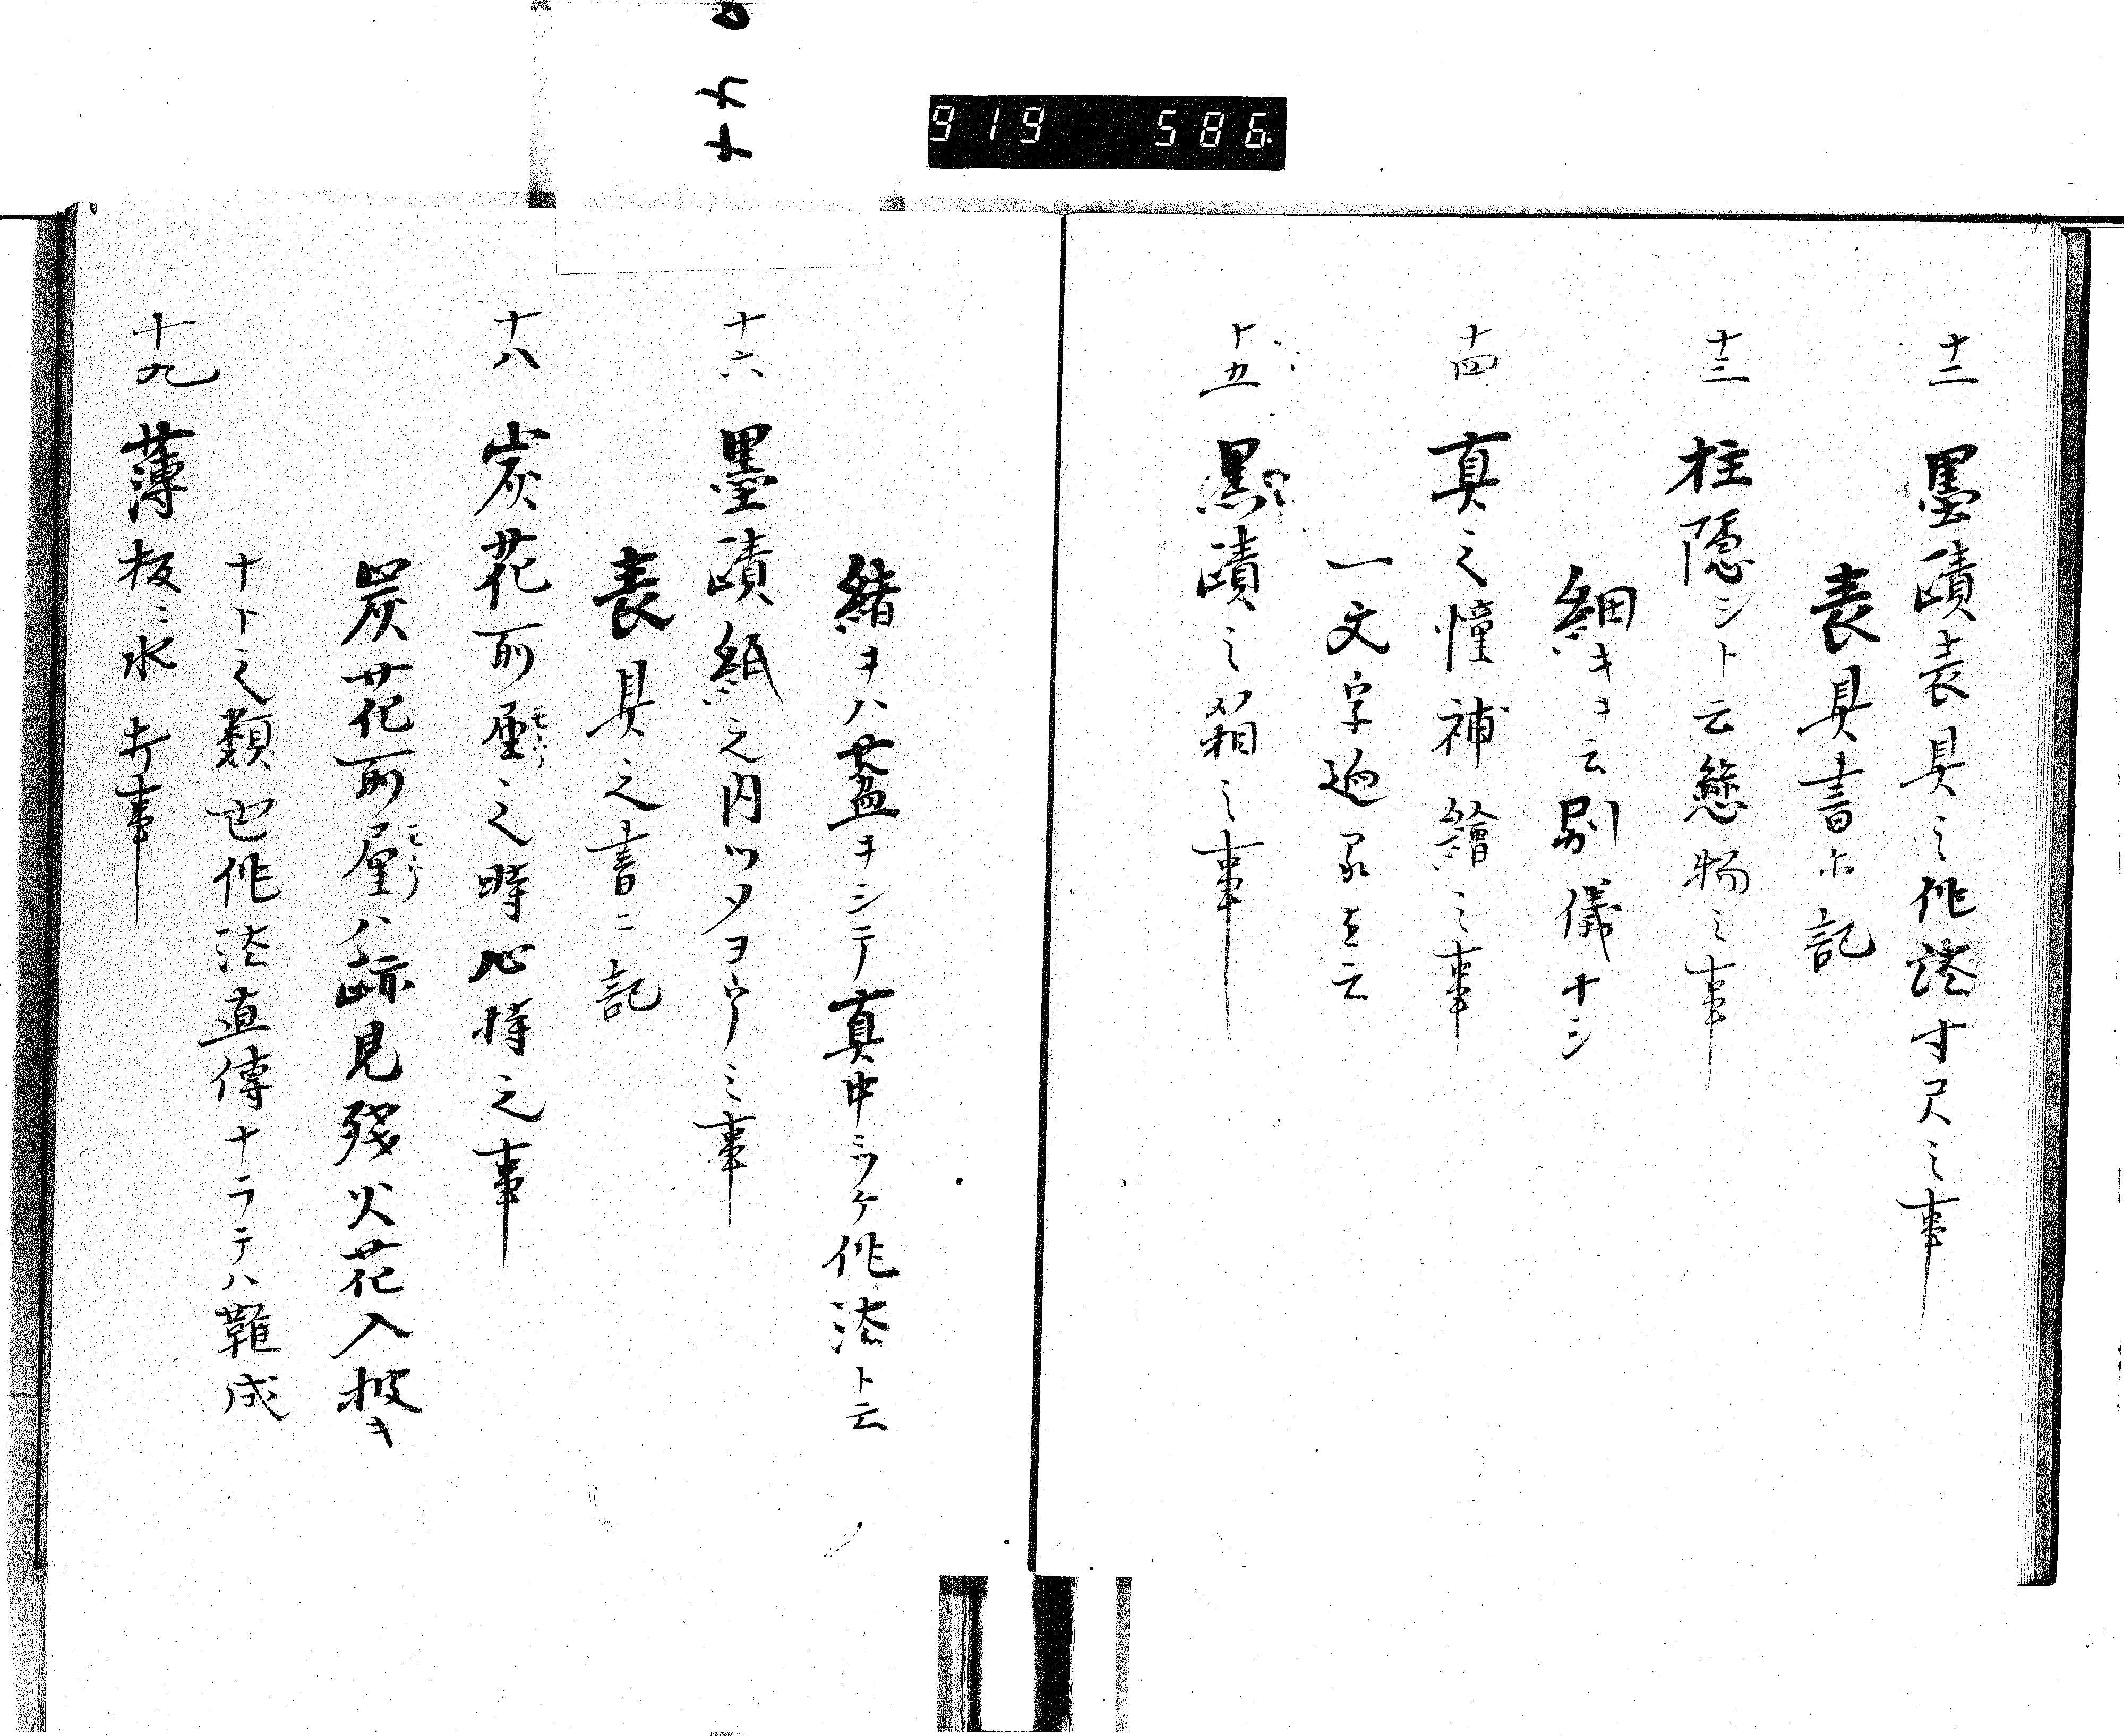 919 586.
十二 墨蹟表具之作法寸尺之事
表具書ニ記
十三 柱隠シト云懸物之事
細キヲ云別儀ナシ
十四 真之幢補繪之事
一文字廻
十五 墨蹟之箱之事
緒ヲハ蓋ヲシテ真中ニツケ作法ト云
十六 墨蹟紙之内ツタヨウ之事
表具之書ニ記
十八 炭花所望之時心持之事
モウ
炭花所望ハ跡見残火花入披キ
モウ
ナト之類也作法直傳ナラテハ難成
十九 薄板ニ水打事